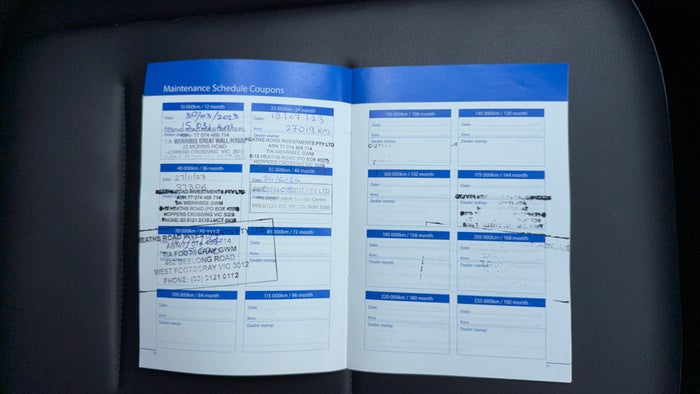 Maintenance Schedule Coupons
10 000km / 12 month
Date: 30/03/2023
Kms: 15 031 km
HEATHS ROAD INVESTMENTS P/L
Dealer stamp:
ABN 77 074 488 714
T/A WERRIBEE GREAT WALL/HAVAL
HOPPERS CROSSING VIC
25 000km /24 month
Date: 18/07/23
Kms: 27019 km
HEATHS ROAD INVESTMENTS PTY LTD
Dealer stamp:
ABN 77 074 488 714
T/A WERRIBEE GWM
8-12 HEATHS ROAD (PO BOX 4027)
HOPPERS CROSSING VIC 3029
40 000km / 36 month
Date: 27/11/23
Kms:
HEATHS ROAD INVESTMENTS PTY LTD
ABN 77 074 488 714
T/A WERRIBEE GWM
8-12 HEATHS ROAD (PO BOX 4027)
HOPPERS CROSSING VIC 3029
PHONE:
55 000km / 48 month
Date:
Dealer stamp:
PRESTON VIC
70 000km / 60 month
HEATHS ROAD INVESTMENTS PTY LTD
ABN 77 074 488 714
T/A FOOTSCRAY GWM
GEELONG ROAD
WEST FOOTSCRAY VIC 3012
PHONE: (03) 9121 0112
85 000km / 72 month
Date:
Kms:
Dealer stamp:
100 000km / 84 month
Date:
Kms:
Dealer stamp:
115 000km / 96 month
Date:
Kms:
Dealer stamp:
130 000km / 108 month
Date:
Kms:
Dealer stamp:
145 000km / 120 month
Date:
Kms:
Dealer stamp:
160 000km / 132 month
Date:
Kms:
Dealer stamp:
175 000km / 144 month
Date:
190 000km / 156 month
Date:
Kms:
Dealer stamp:
205 000km / 168 month
Date:
Kms:
Dealer stamp:
220 000km / 180 month
Date:
Kms:
Dealer stamp:
235 000km / 192 month
Date:
Kms:
Dealer stamp: